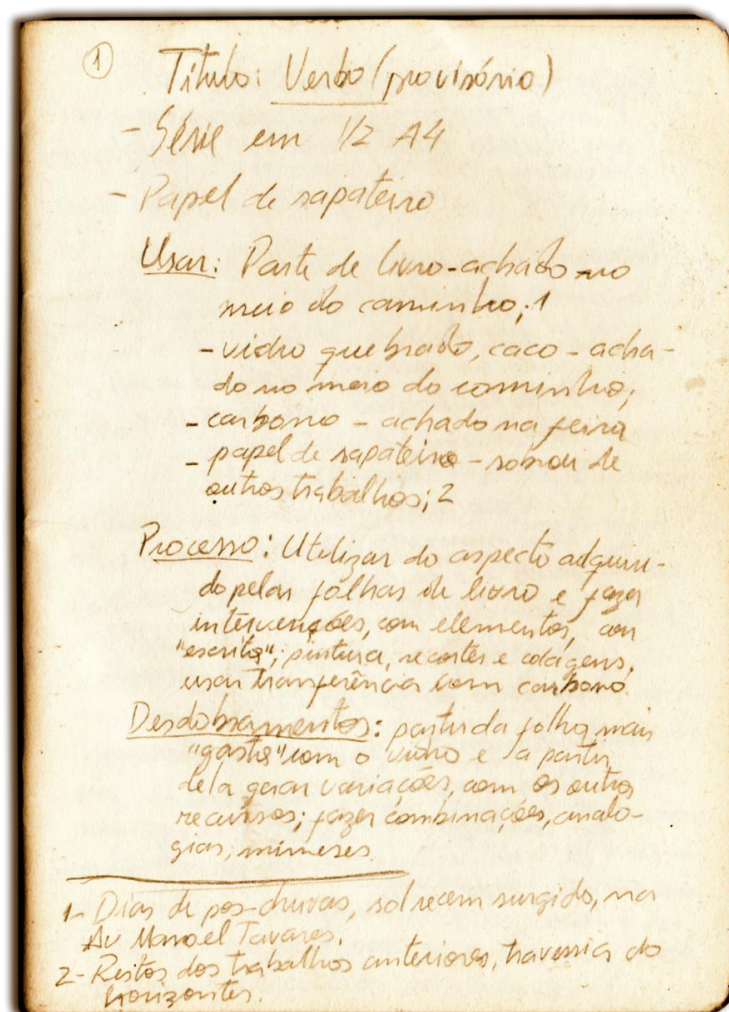 1
Título: Verbo (provisório)
- Série em 1/2 A4
- Papel de sapateiro
Usar: Parte de livro - achado no
meio do caminho; 1
- vidro quebrado, caco - acha-
do no meio do caminho;
- carbono - achado na feira
- papel de sapateiro - sobrou de
outros trabalhos; 2
Processo: Utilizar do aspecto adquiri-
do pelas folhas de livro e fazer
intervenções, com elementos, com
"escrita"; pintura, recortes e colagens,
usar tranferência com carbono.
Desdobramentos: partir da folha mais
"gasta" com o vidro e a partir
dela gerar variações, com os outros
recursos; fazer combinações, analo-
gias, mimeses.
1- Dias de pos-chuvas, sol recem surgido, na
Av Manoel Tavares.
2- Restos dos trabalhos anteriores, travessia do
horizontes.